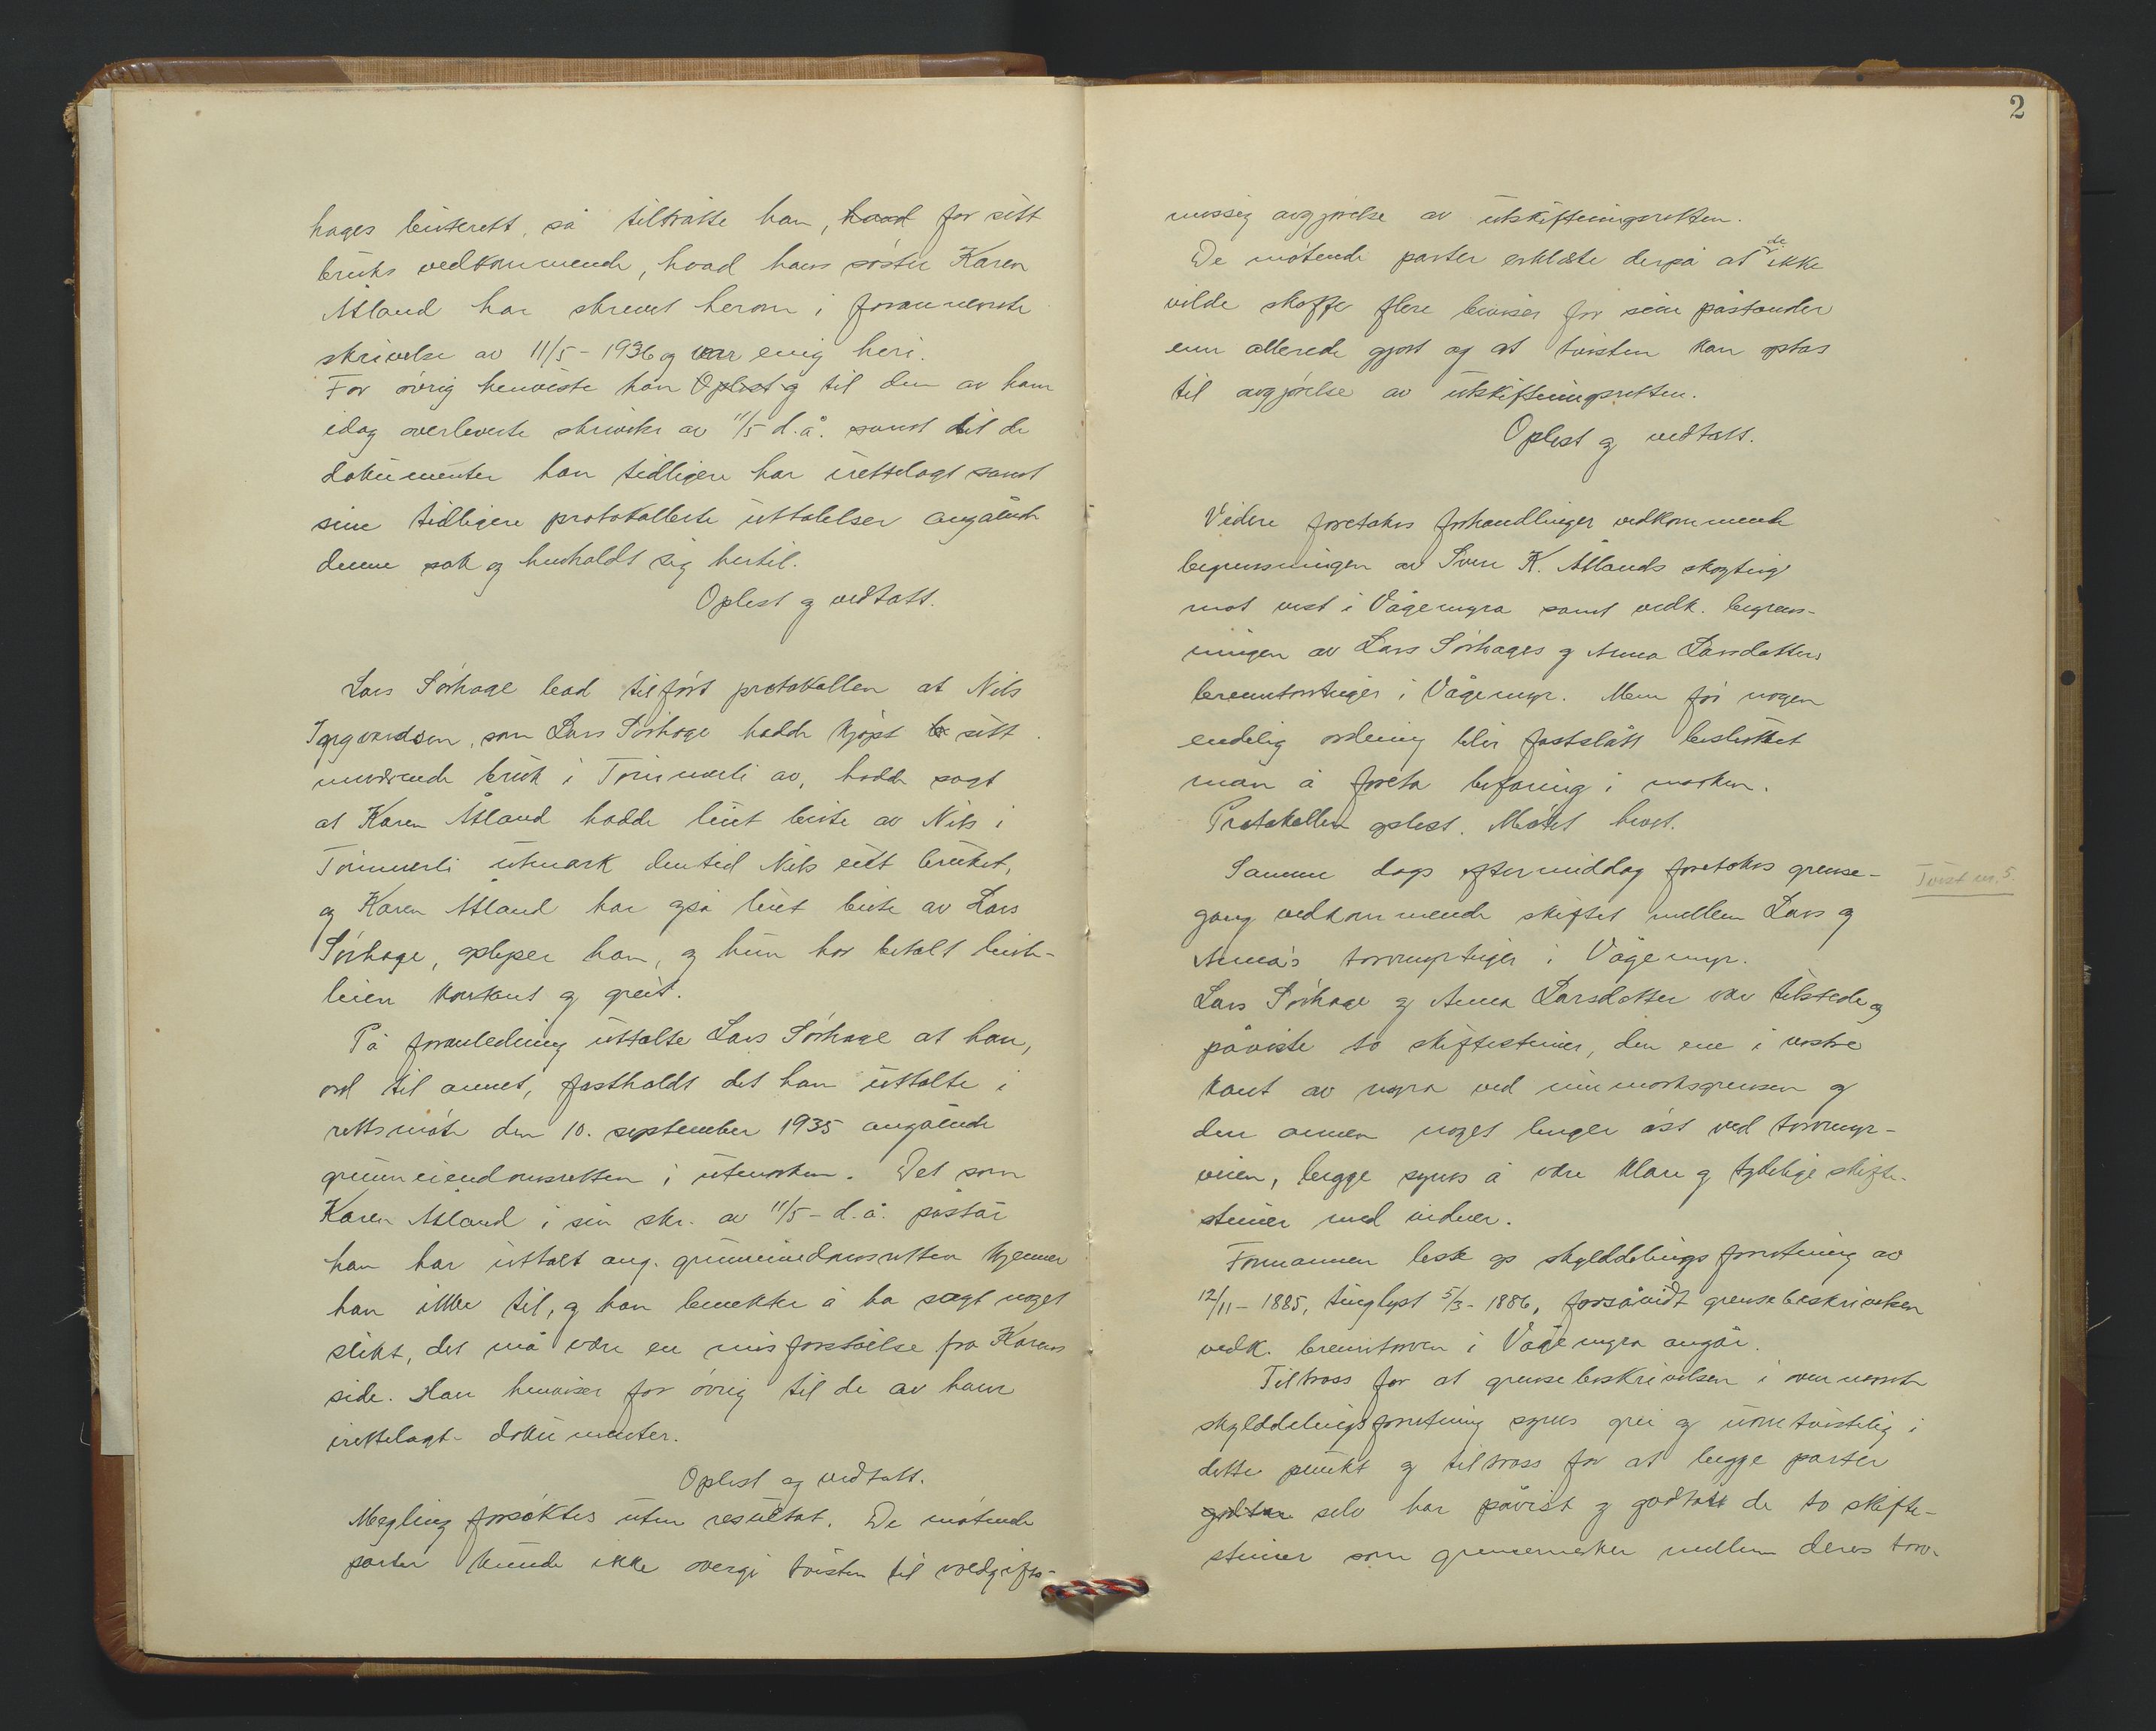 hages beiterett, så tiltrådte han, hvad for sitt
bruks vedkommende, hvad hans søster Karen
Åsland har skrevet herom i forannevnte
skrivelse av 11/5 - 1936 og var enig heri.
For øvrig henviste han Oplest og til den av ham
idag overleverte skrivelse av 11/5 d.å. samt til de
dokumenter han tidligere har irettelagt samt
sine tidligere protokollerte uttalelser angående
denne sak og henholdt sig hertil.
Oplest og vedtatt.
Lars Sørhage bad tilført protokollen at Nils
som Lars Sørhage hadde kjøpt sitt
nuværende bruk i Tormerli av, hadde sagt
at Karen Åsland hadde leiet beite av Nils i
Tormerli utmark den tid Nils eiet bruket,
og Karen Åsland har også leiet beite av Lars
Sørhage, oplyser han, og hun har betalt beite-
leien kontant og greit.
På foranledning uttalte Lars Sørhage at han,
ord til annet, fastholdt det han uttalte i
rettsmøte den 10. september 1935 angående
grunneiendomsretten i utmarken. Det som
Karen Åsland i sin skr. av 11/5 - d.å. påstår
han har uttalt ang. grunneiendomsretten kjenner
han ikke til, og han benekter å ha sagt noget
slikt, det må være en misforståelse fra Karens
side. Han henviser for øvrig til de av ham
irettelagte dokumenter.
Oplest og vedtatt.
Megling forsøktes uten resultat. De møtende
parter kunde ikke overgi tvisten til voldgifts-
2
messig avgjørelse av utskiftningsretten.
De møtende parter erklærte derpå at de ikke
vilde skaffe flere beviser for sine påstander
enn allerede gjort og at tvisten kan optas
til avgjørelse av utskiftningsretten.
Oplest og vedtatt.
Videre foretokes forhandlinger vedkommende
begrensningen av Sven K. Åslands skogteig
mot vest i Vågemyra samt vedk. begrens-
ningen av Lars Sørhages og Anna Larsdatters
brenntorvteiger i Vågemyr. Men før nogen
endelig ordning blir fastslått besluttet
man å foreta befaring i marken.
Protokollen oplest. Møtet hevet.
Samme dags eftermiddag foretokes grense-
Tvist nr. 5.
gang vedkommende skiftet mellem Lars og
Anna's torvmyrteiger i Vågemyr.
Lars Sørhage og Anna Larsdatter var tilstede og
påviste to skiftesteiner, den ene i vestre
kant av myra ved innmarksgrensen og
den annen noget lenger øst ved torvmyr-
veien, begge synes å være klare og tydelige skifte-
steiner med vidner.
Formannen leste op skylddelingsforretning av
12/11 - 1885, tinglyst 5/3 - 1886, forsåvidt grensebeskrivelsen
vedk. brenntorven i Vågemyra angår.
Tiltross for at grensebeskrivelsen i ovennevnte
skylddelingsforretning synes grei og uomtvistelig i
dette punkt og tiltross for at begge parter
godtar selv har påvist og godtatt de to skifte-
steiner som grensemerker mellem deres torv-